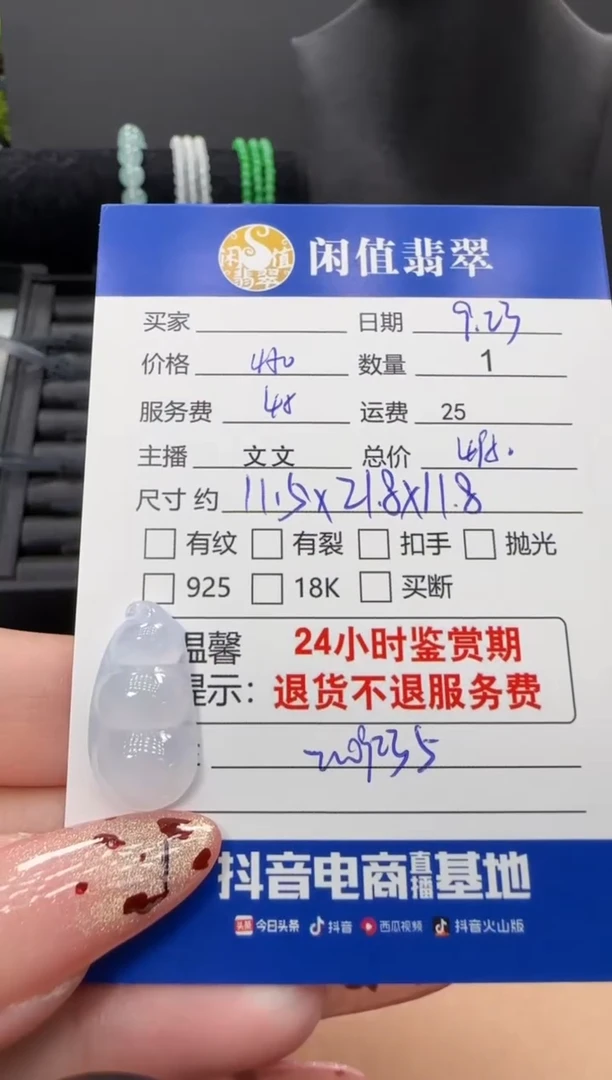 闲值翡翠
闲值翡翠
买家 日期 9.23
价格 480 数量 1
服务费 48 运费 25
主播 文文 总价
尺寸 约 11.5x21.8x11.8
有纹 有裂 扣手 抛光
925 18K 买断
温馨 24小时鉴赏期
提示: 退货不退服务费
:
抖音电商直播基地
头条 今日头条 抖音 西瓜视频 抖音火山版